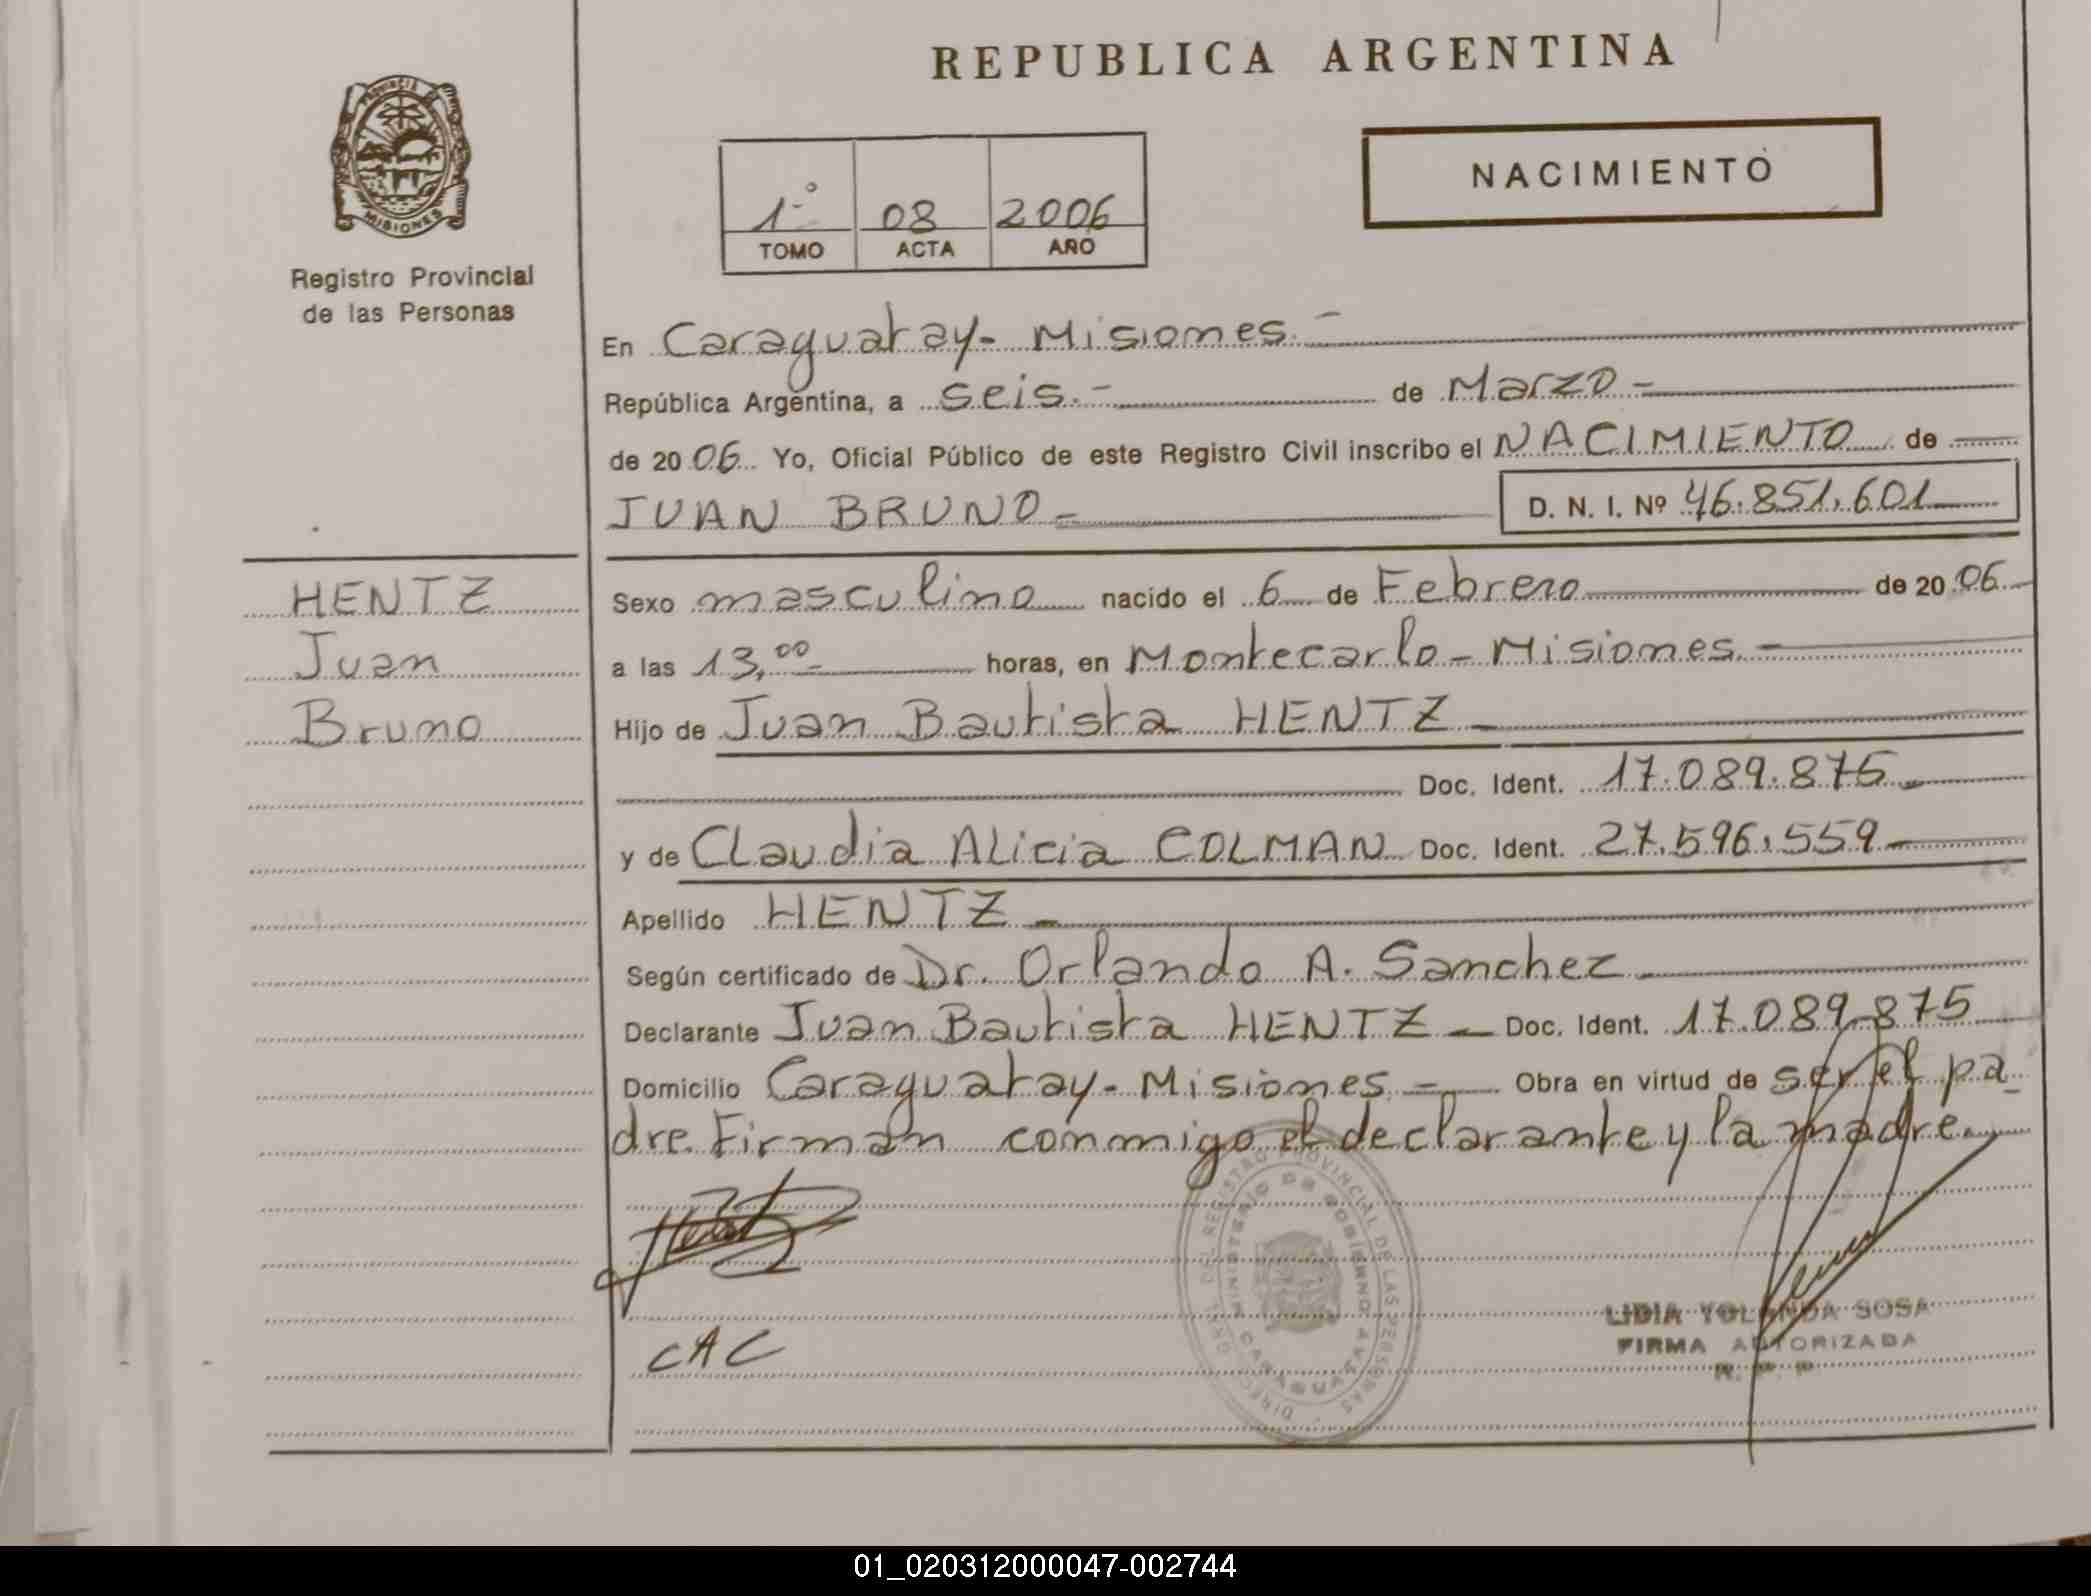 REPUBLICA ARGENTINA
PROVINCIA DE
MISIONES
Registro Provincial
de las Personas
NACIMIENTO
1º 08 2006
TOMO ACTA AÑO
En Caraguatay - Misiones.-
República Argentina, a seis.- de Marzo -
de 2006 Yo, Oficial Público de este Registro Civil inscribo el NACIMIENTO de
JUAN BRUNO - D. N. I. Nº 46.851.601
HENTZ
Juan
Bruno
Sexo masculino nacido el 6 de Febrero de 2006
a las 13,00 horas, en Montecarlo - Misiones.-
Hijo de Juan Bautista HENTZ -
Doc. Ident. 17.089.875 -
y de Claudia Alicia COLMAN Doc. Ident. 27.596.559 -
Apellido HENTZ -
Según certificado de Dr. Orlando A. Sanchez
Declarante Juan Bautista HENTZ - Doc. Ident. 17.089.875
Domicilio Caraguatay - Misiones - Obra en virtud de ser el pa-
dre. Firman conmigo el declarante y la madre.
Hentz
CAC
LIDIA YOLANDA SOSA
FIRMA AUTORIZADA
MINISTERIO DE GOBIERNO
01_020312000047-002744